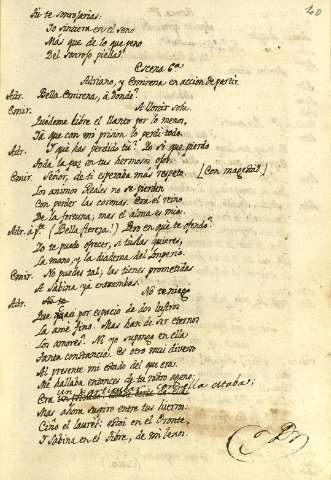 40
Tú te sonrojarias:
Yo sincera en el seno
Más que de lo que peno
Del sonrojo piedad.
Escena 6.ª
Adriano, y Emirena en accion de partir.
Adr. Bella Emirena, á donde?
Emir. A llorar sola.
Quedeme libre el llanto por lo menos,
Ya que con mi prision lo perdí todo.
Adr. Y qué has perdido tú? Yo sí que pierdo
Toda la paz en tus hermosos ojos.
Emir. Señor, de ti esperaba más respeto. [Con magestad.]
Los animos Reales no se pierden
Con perder las coronas. Era el reino
De la fortuna, mas el alma es mia.
Adr. á p.te (Bella fiereza!) Pero en qué te ofendo?
Yo te puedo ofrecer, si tú las quieres,
La mano, y la diadema del Imperio.
Emir. No puedes tal; las tienes prometidas
A Sabina ya entrambas.
Adr. No te niego
Que por espacio de dos lustros
La amé fino. Mas han de ser eternos
Los amores? Ni yo supongo en ella
Tanta constancia. Es otro mui diverso
Al presente mi estado del que era.
Me hallaba entonces de tu rostro ageno;
Era un particular, con ella estaba;
Mas ahora suspiro entre tus hierros:
Ciño el laurel: estoi en el Oronte,
Y Sabina en el Tibre, de mi lexos.